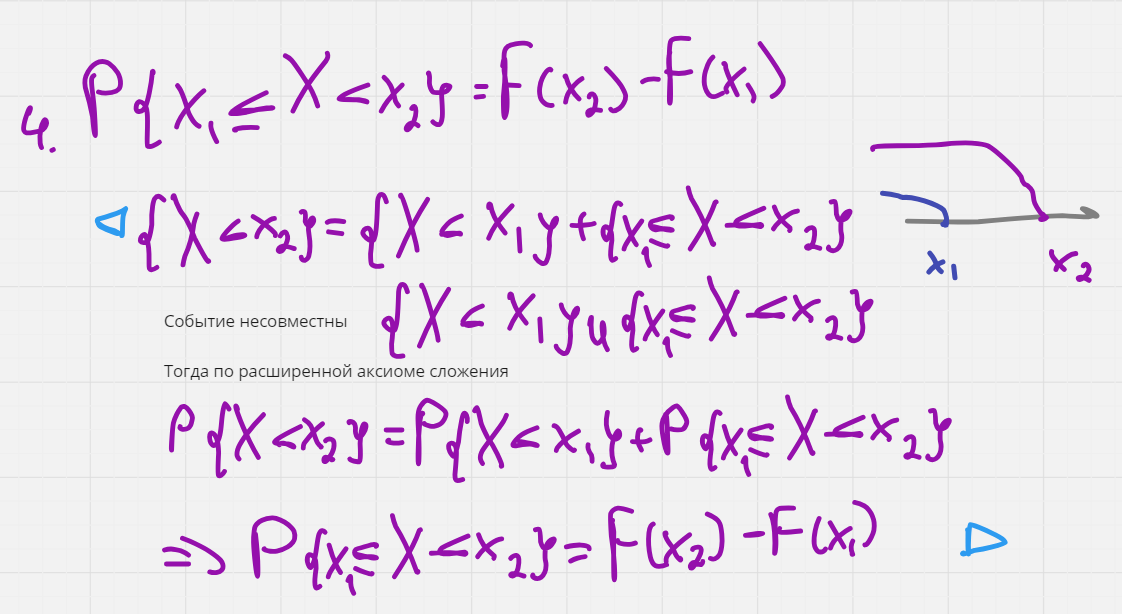 4. P{x₁ ≤ X < x₂} = F(x₂) - F(x₁)
{X < x₂} = {X < x₁} + {x₁ ≤ X < x₂}
x₁ x₂
Событие несовместны {X < x₁} и {x₁ ≤ X < x₂}
Тогда по расширенной аксиоме сложения
P{X < x₂} = P{X < x₁} + P{x₁ ≤ X < x₂}
⇒ P{x₁ ≤ X < x₂} = F(x₂) - F(x₁)